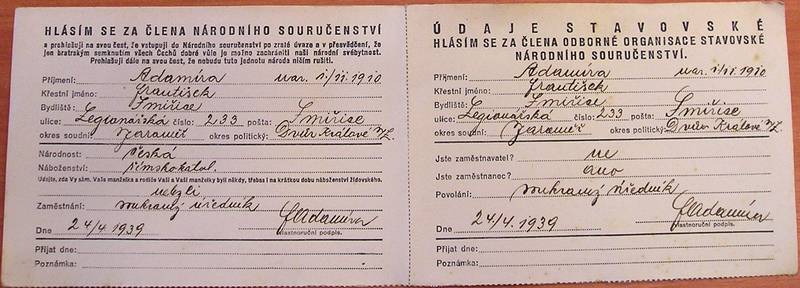 HLÁSÍM SE ZA ČLENA NÁRODNÍHO SOURUČENSTVÍ
a prohlašuji na svou čest, že vstupuji do Národního souručenství po zralé úvaze a v přesvědčení, že
jen bratrským semknutím všech Čechů dobré vůle je možno zachrániti naši národní svébytnost.
Prohlašuji dále na svou čest, že nebudu tuto jednotu národa ničím rušiti.
Příjmení: Adamíra nar. 11/11 1910
Křestní jméno: František
Bydliště: Smiřice
ulice: Legionářská číslo: 233 pošta: Smiřice
okres soudní: Jaroměř okres politický: Dvůr Králové n/L.
Národnost: česká
Náboženství: římskokatol.
Udajte, zda Vy sám, Vaše manželka a rodiče Vaši a Vaší manželky byli někdy, třebas i na krátkou dobu náboženství židovského.
nebyli
Zaměstnání: soukromý úředník
Dne 24/4. 1939 FAdamíra
vlastnoruční podpis.
Přijat dne:
Poznámka:
ÚDAJE STAVOVSKÉ
HLÁSÍM SE ZA ČLENA ODBORNÉ ORGANISACE STAVOVSKÉ
NÁRODNÍHO SOURUČENSTVÍ.
Příjmení: Adamíra nar. 11/11 1910
Křestní jméno: František
Bydliště: Smiřice
ulice: Legionářská číslo: 233 pošta: Smiřice
okres soudní: Jaroměř okres politický: Dvůr Králové n/L.
Jste zaměstnavatel? ne
Jste zaměstnanec? ano
Povolání: soukromý úředník
Dne 24/4. 1939 FAdamíra
vlastnoruční podpis.
Přijat dne:
Poznámka: